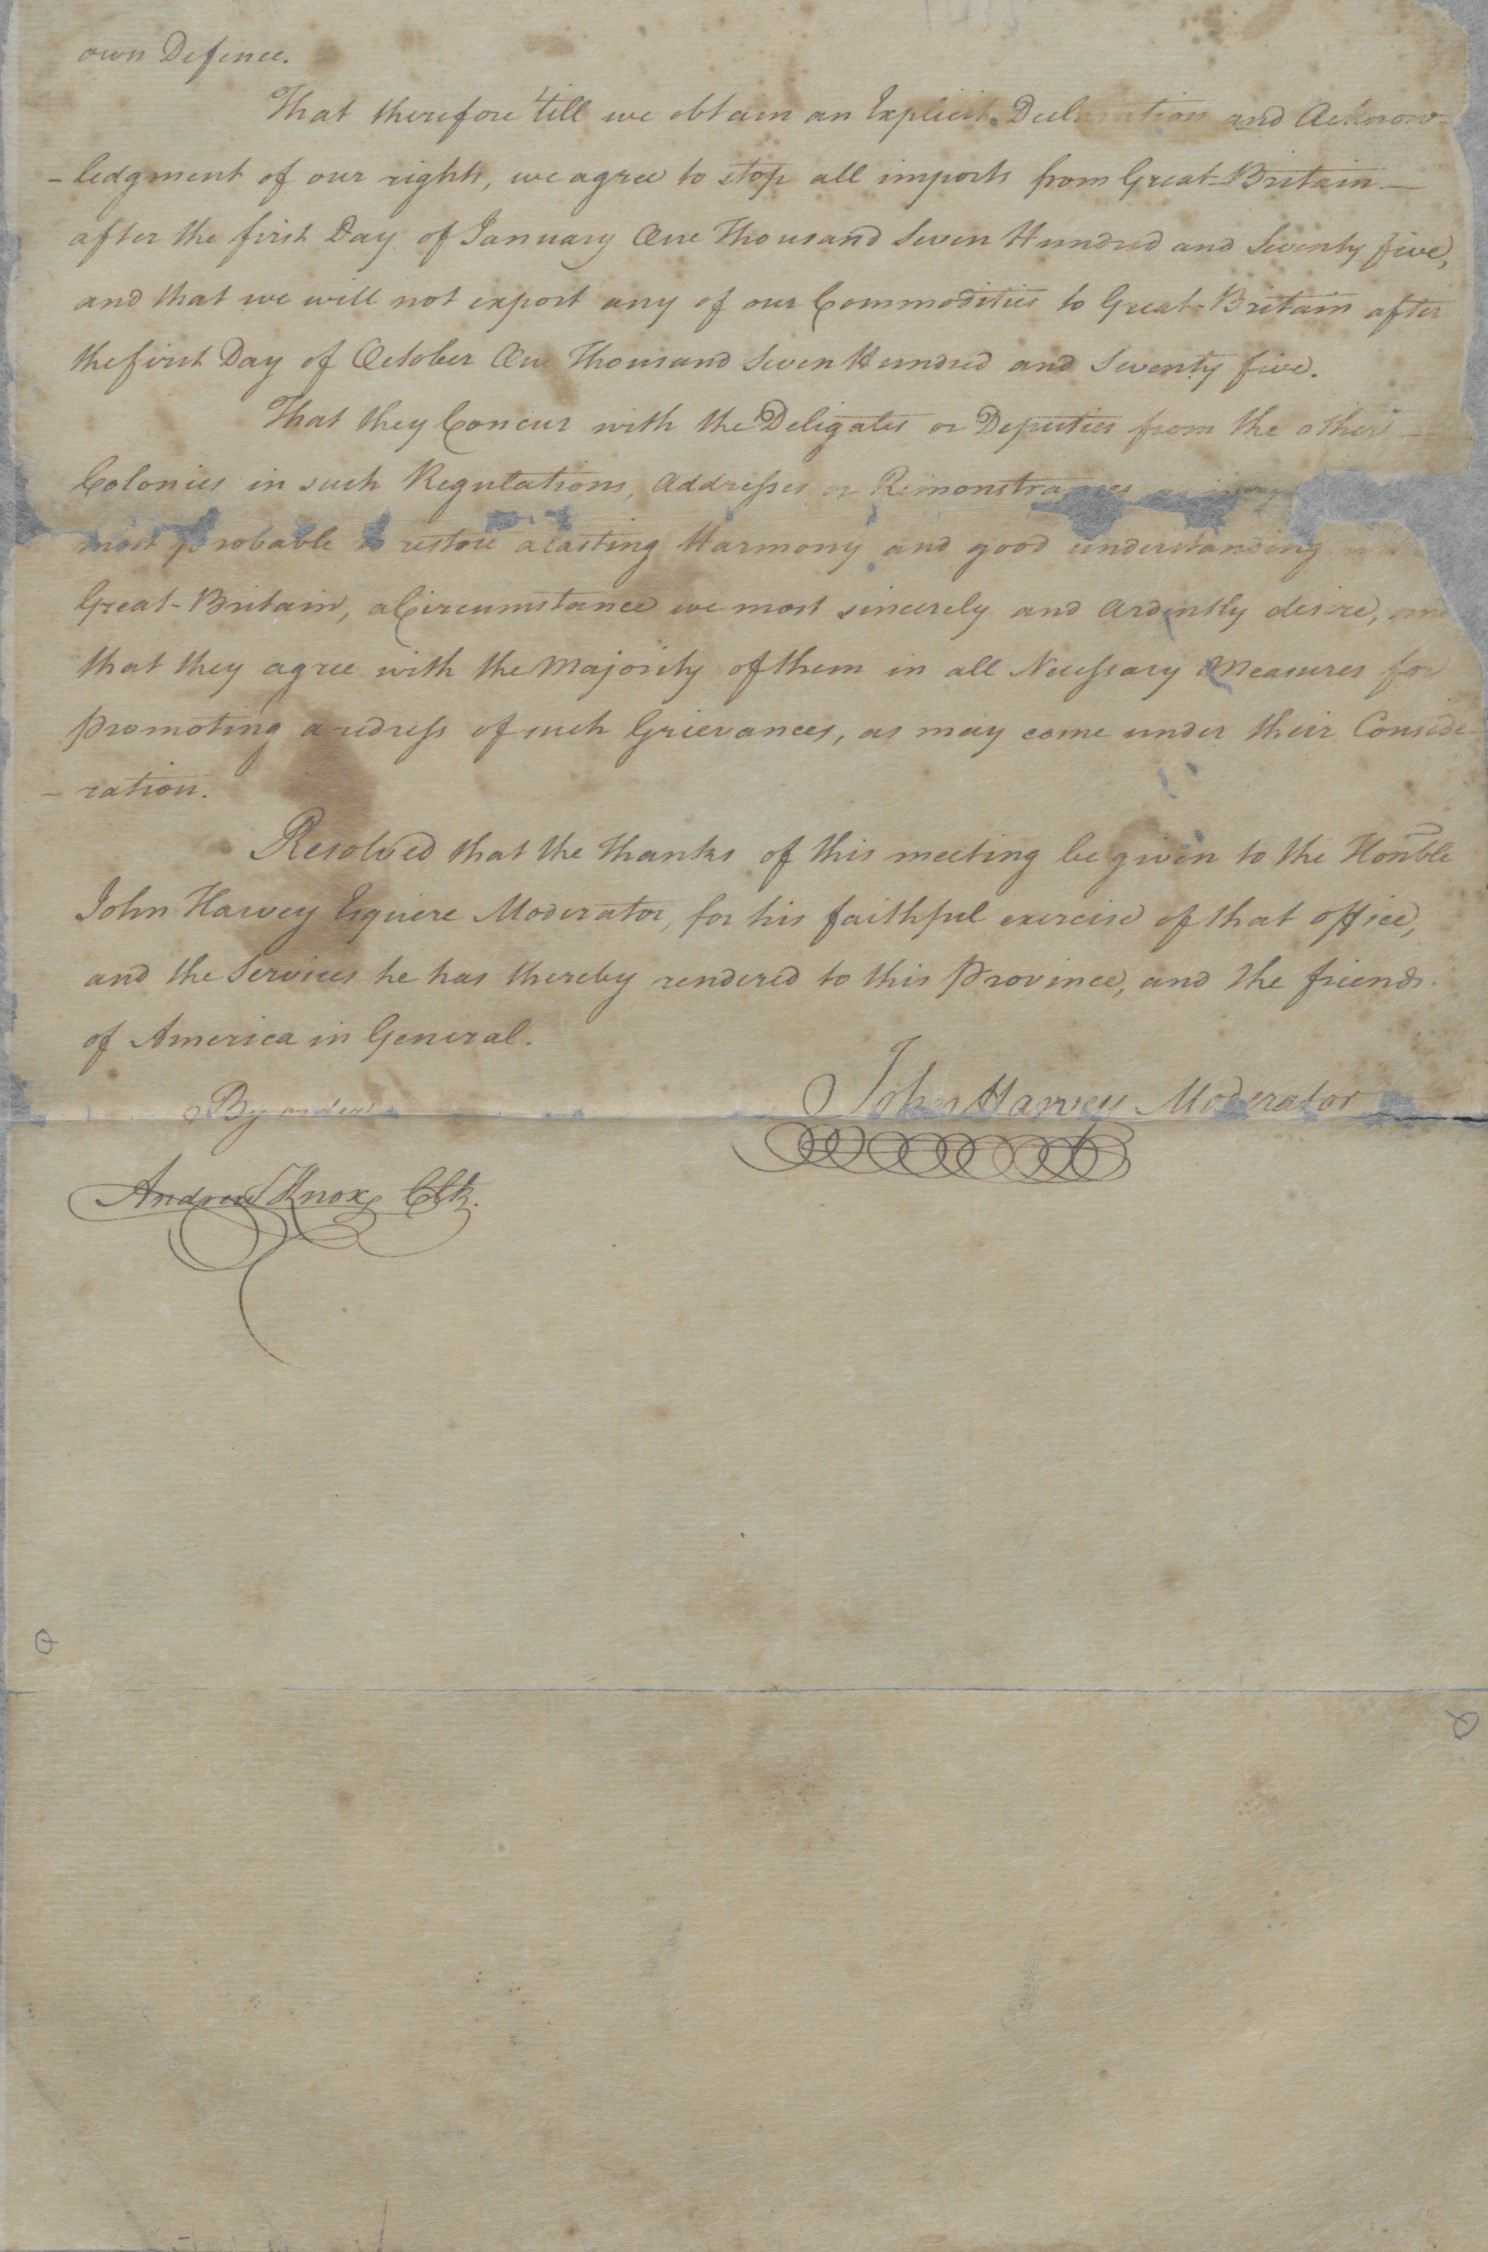 own Defence.
That therefore 'till we obtain an Explicit Declaration and Acknow-
-ledgment of our rights, we agree to stop all imports from Great-Britain
after the first Day of January One Thousand Seven Hundred and Seventy five,
and that we will not export any of our Commodities to Great-Britain after
the first Day of October One Thousand Seven Hundred and Seventy five.
That they Concur with the Deligates or Deputies from the other
Colonies in such Regulations, Addresses or Remonstrances
most probable to restore a lasting Harmony and good understanding
Great-Britain, a Circumstance we most sincerely and Ardently desire, and
that they agree with the Majority of them in all Necessary Measures for
promoting a redress of such Grievances, as may come under their Conside-
-ration.
Resolved that the thanks of this meeting be given to the Honble
John Harvey Esquire Moderator, for his faithful exercise of that office,
and the Services he has thereby rendered to this Province, and the friends
of America in General.
By order
John Harvey Moderator
Andrew Knox Clk.